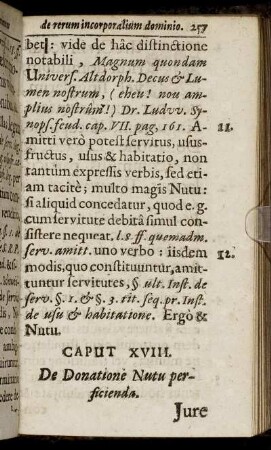 de rerum incorporalium dominio. 257
bet]: vide de hâc distinctione
notabili, Magnum quondam
Univers. Altdorph. Decus & Lu-
men nostrum, (eheu! nou am-
plius nostrûm!) Dr. Ludvv. Sy-
nops. feud. cap. VII. pag. 161. A- 11.
mitti verò potest servitus, usus-
fructus, usus & habitatio, non
tantùm expressis verbis, sed et-
iam tacitè; multo magis Nutu:
si aliquid concedatur, quod e. g.
cum servitute debitâ simul con-
sistere nequeat. l. 8. ff. quemadm.
serv. amitt. uno verbo: iisdem 12.
modis, quo constituuntur, amit-
tuntur servitutes, § ult. Inst. de
serv. §. 1. & §. 3. tit. seq. pr. Inst.
de usu & habitatione. Ergò &
Nutu.
CAPUT XVIII.
De Donatione Nutu per-
ficienda.
Jure